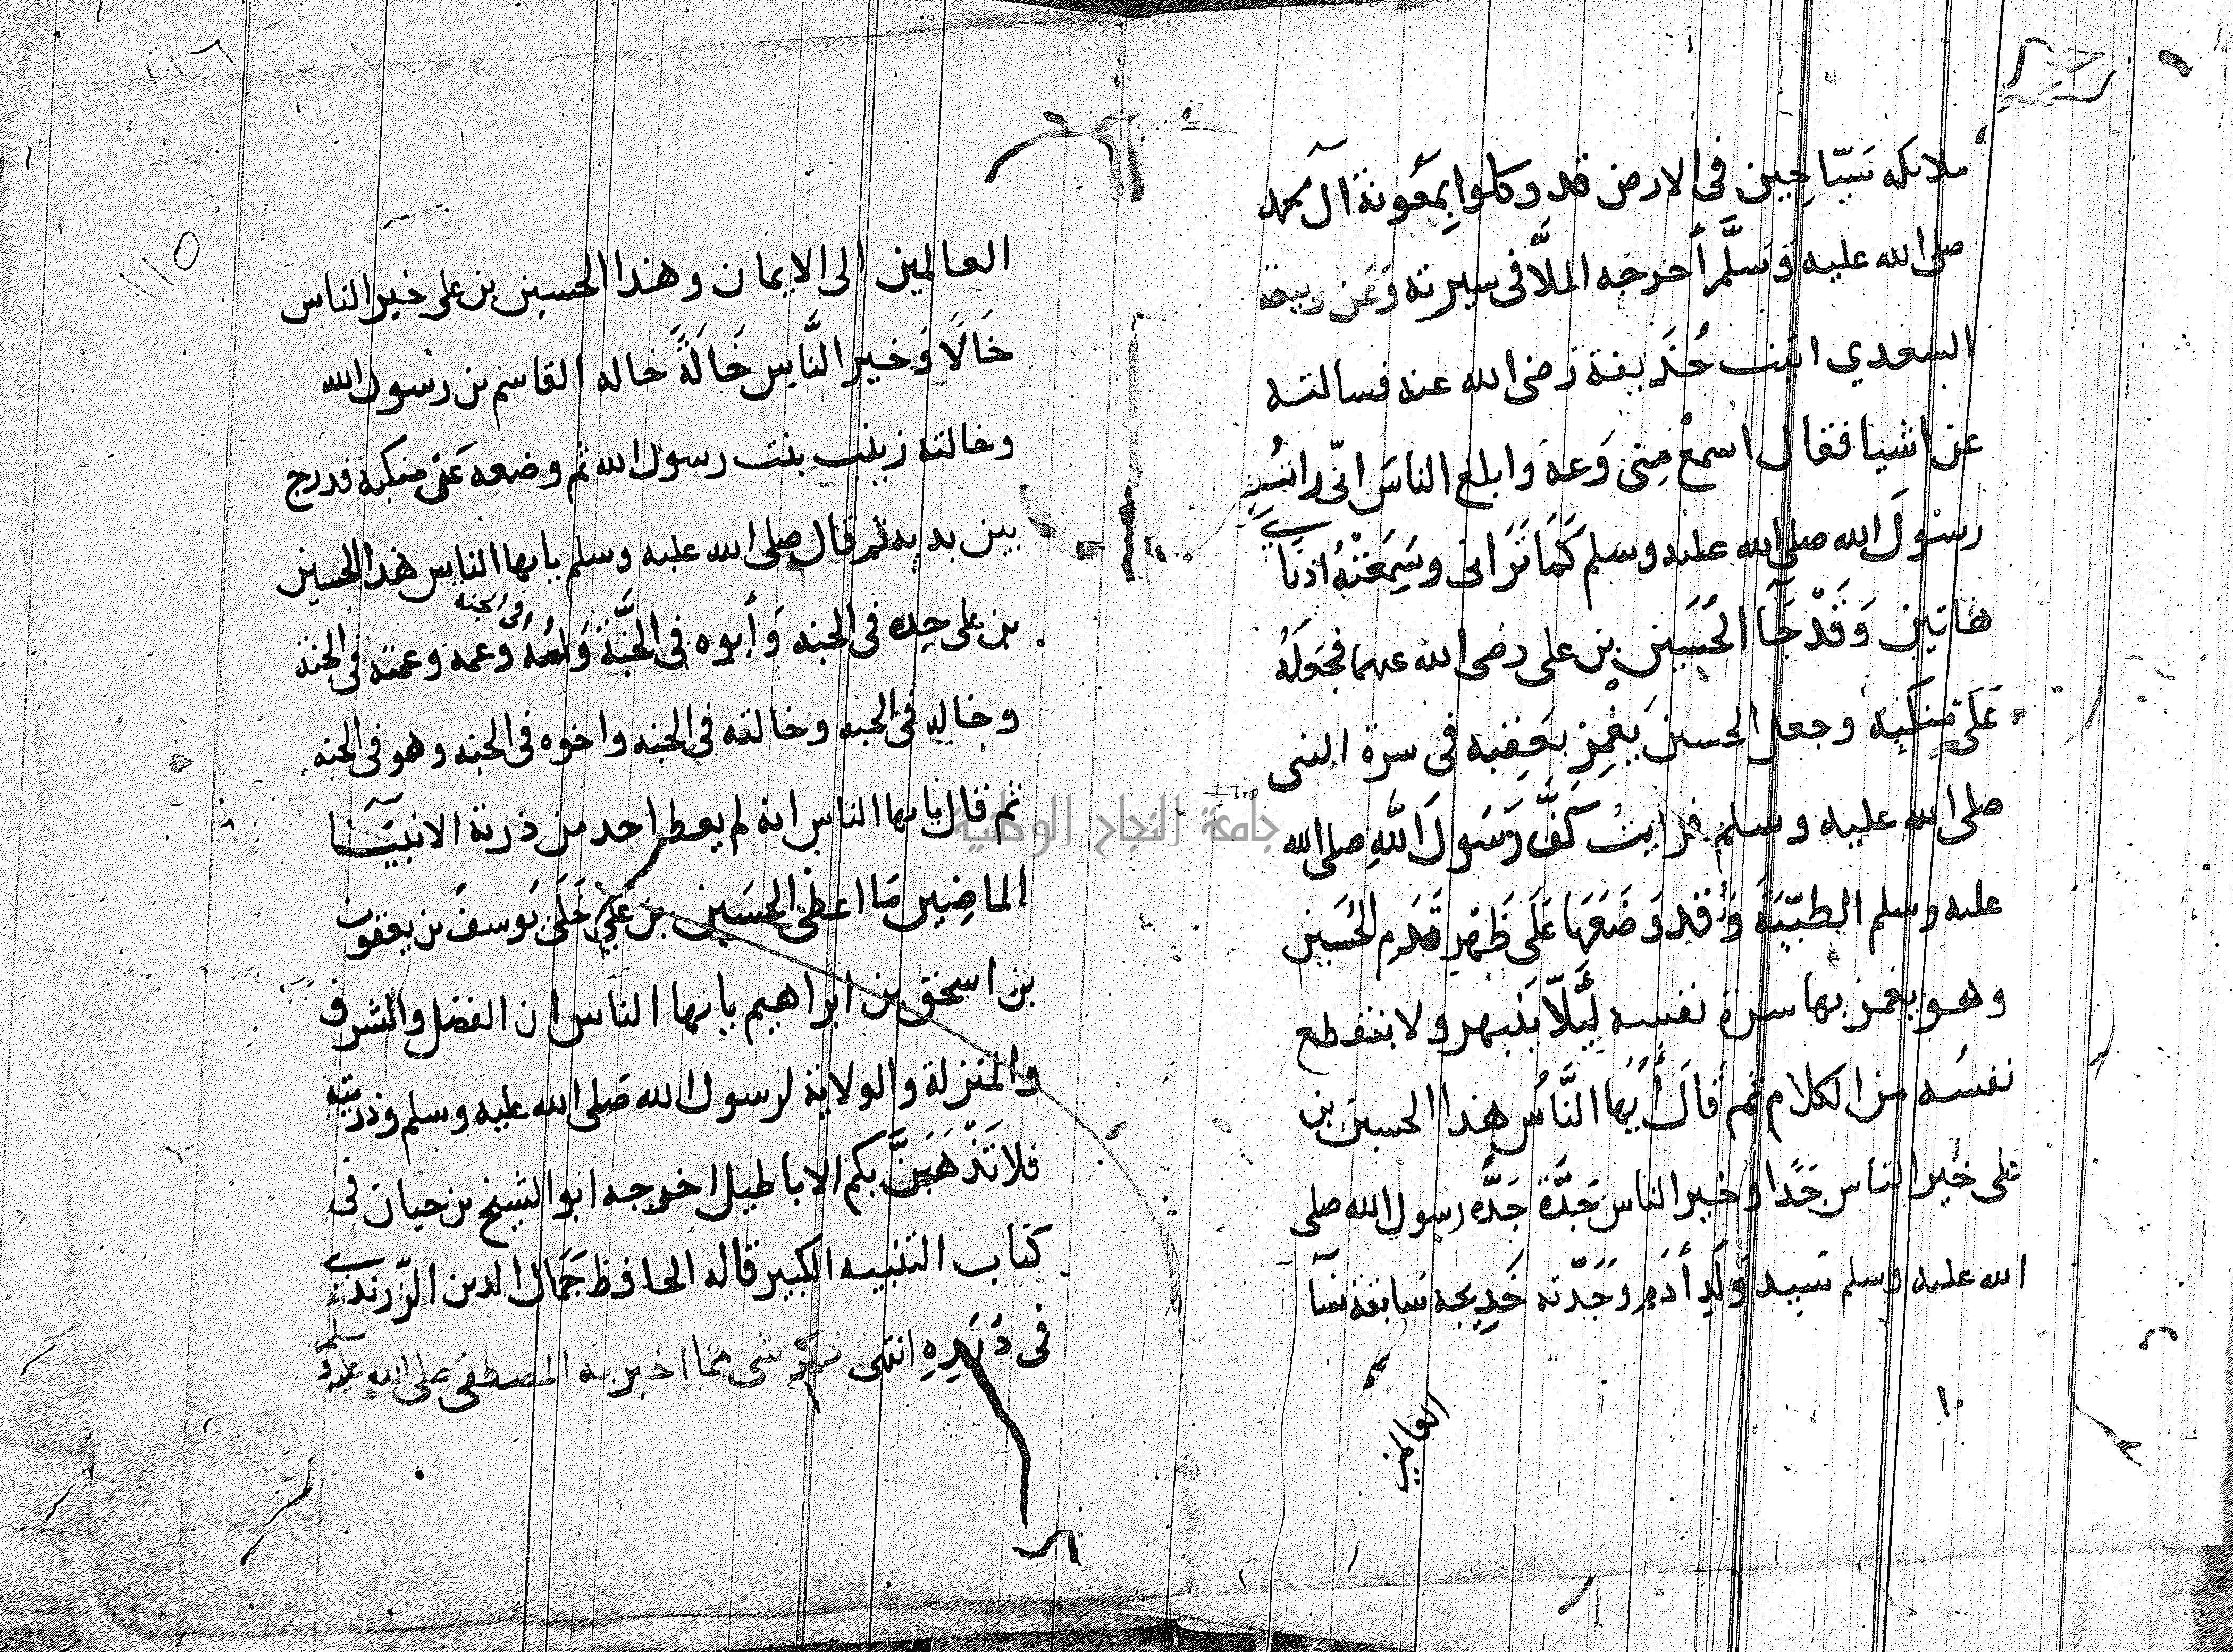 ملائكه سَيّاحِين فى الارض قد وكلوا بِمَعُونة آل محمد
صلى الله عليه وَسَلَّم أخرجه الملَّا فى سيرته وَعَن ربيعة
السعدي اتيت حُذَيفة رضى الله عنه فسالته
عن اشيا فقال اسمعْ مِنى وَعه وابلغ الناسَ انّى رايتُ
رسُولَ الله صلى الله عليه وسلم كَمَا تَرَانى وسَمِعَتْهُ اذناى
هاتين وَقَدْ جَا الحُسَين بن على رضى الله عنهما فجعَلهُ
عَلَى منكبه وجعل الحسين يَغمِز بعَقِبه فى سرة النبى
صلى الله عليه وسلم فرايتُ كفَّ رَسُولَ اللَّهِ صلى الله
عليه وسلم الطيّبَة وَقد وَضَعَهَا عَلَى ظَهْرِ قَدَمِ الحُسَين
وهو يغمز بها سرة نفسه لِئَلّا ينبهر ولا ينقطع
نفسُه من الكلام ثم قالَ أَيُها النَّاسُ هذا الحسين بن
على خير الناس جَدًا وخير الناس جَدَّة جَدُّه رسول الله صلى
الله عليه وسلم سَيِد وَلَدِ أدَم وَجَدّته خَدِيجه سَابقة نسَآ
العالمين
العالمين الى الايمان وهذا الحسين بن على خير الناس
خَالًا وَخير النَّاس خَالَةً خاله القاسم بن رسول الله
وخالته زينب بنت رسول الله ثم وضعه عَن منكبه فدرج
بين يديه ثم قال صلى الله عليه وسلم يايها الناس هذا الحسين
بن على جده فى الجنه وَأبوه فى الجَنَّة وَامُهُ فى الجنه وعمه وعمته فى الجنة
وخاله فى الجنه وخالته فى الجنه واخوه فى الجنه وهو فى الجنه
ثم قال يايها الناس انه لم يعط احد من ذرية الانبيَآ
الماضِين مَا اعطى الحسَين بن علي خَلَى يُوسفَ بن يعقوب
بن اسحق بن ابراهيم يايها الناس ان الفضل والشرف
والمنزلة والولاية لرسول الله صَلى الله عليه وسلم وذريته
فلا تَذْهَبَنَّ بكم الاباطيل اخرجه ابو الشيخ بن حيان فى
كتاب التنبيه الكبير قاله الحافظ جَمَال الدين الزّرندى
فى دُرَرِهِ انتهى ذكر شى مما اخبر به المصطفى صلى الله عليه وسلم
١١٥
جامعة النجاح الوطنية